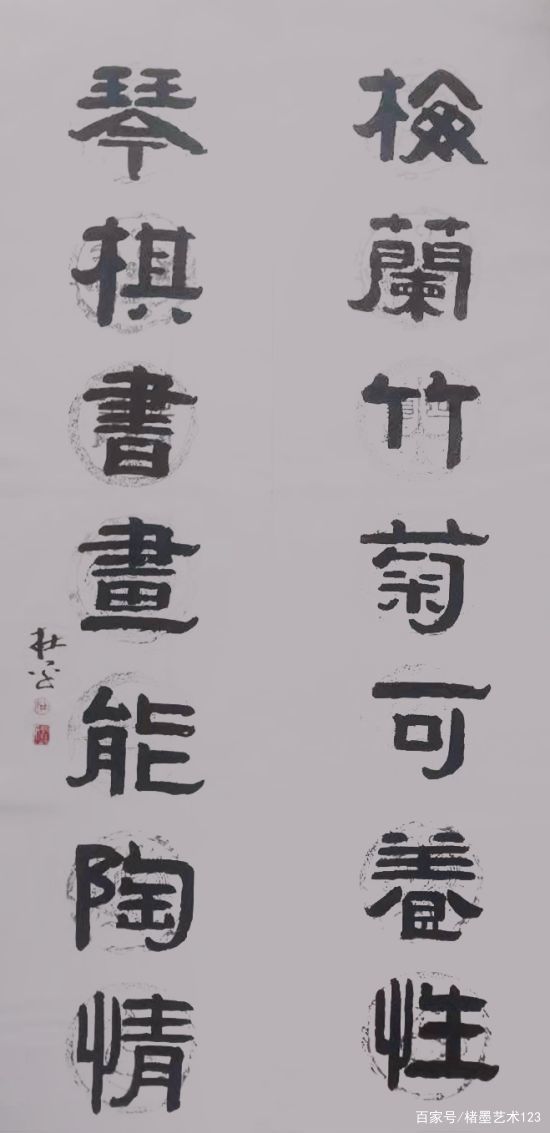 梅蘭竹菊可養性
琴棋書畫能陶情
百家号/楮墨艺术123